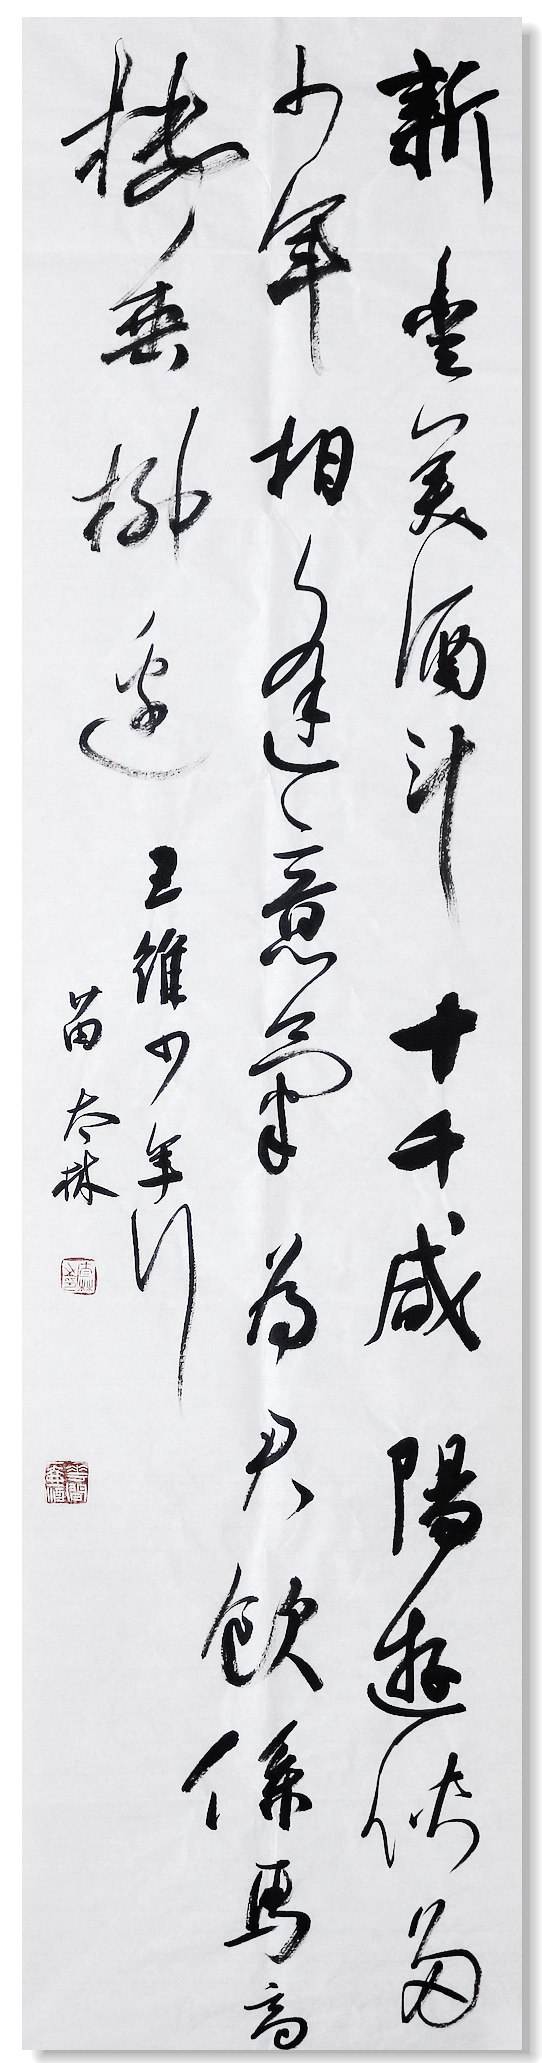 新豐美酒斗十千咸陽遊俠多
少年相逢意氣為君飲係馬高
樓垂柳邊
王維少年行
苗太林